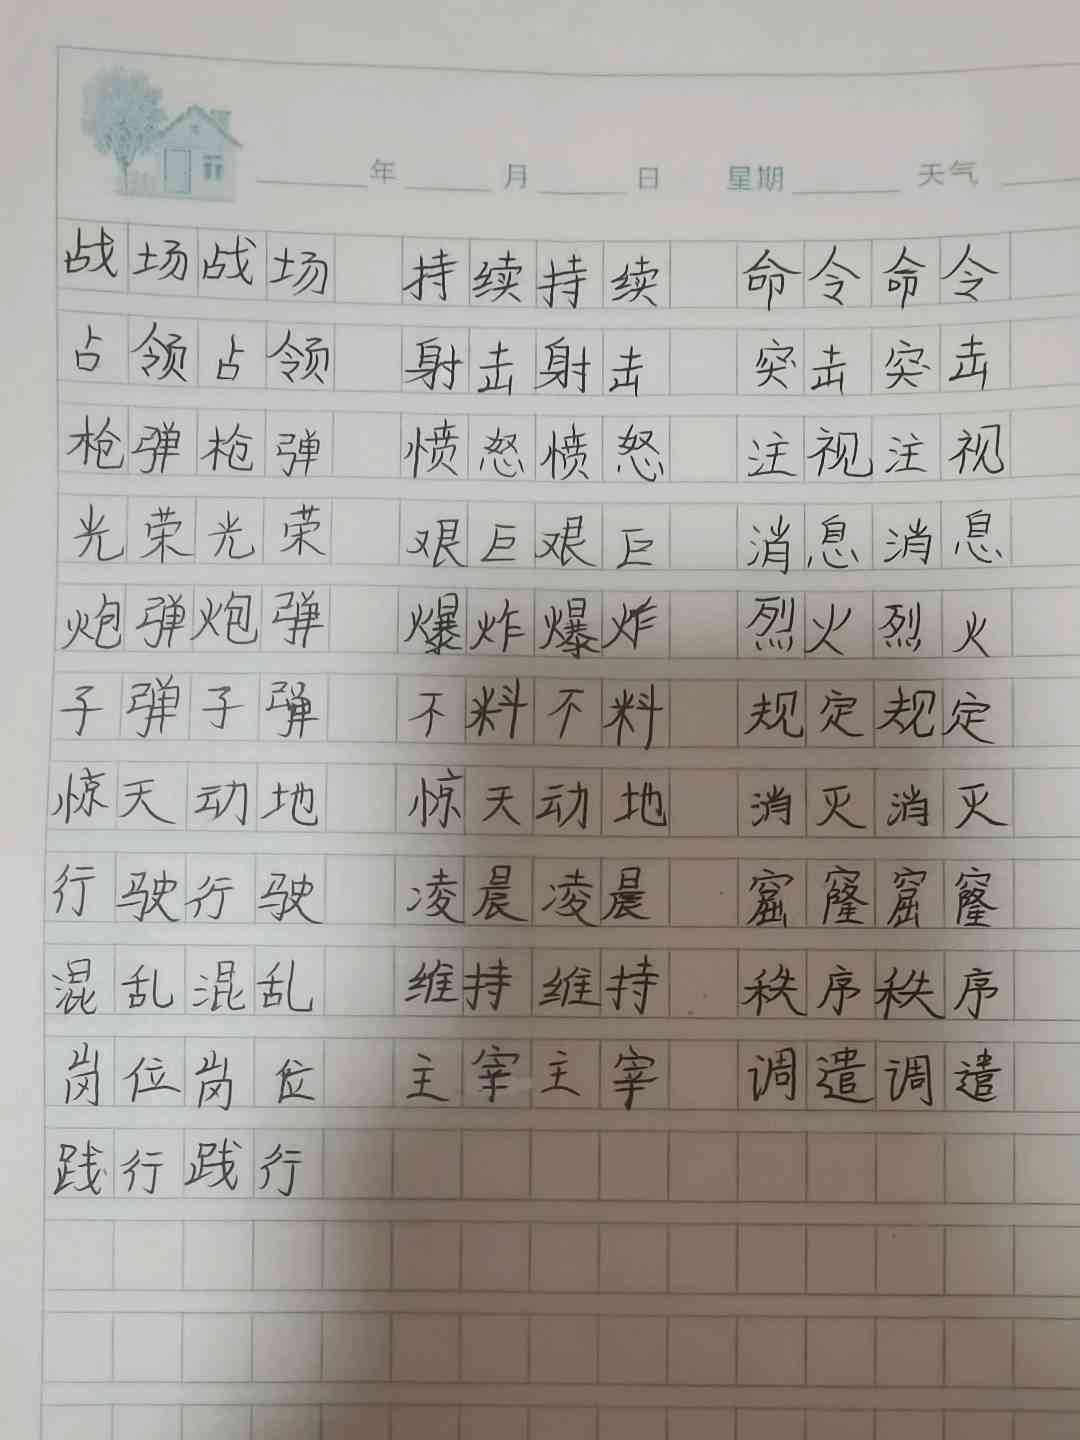 年 月 日 星期 天气
战场战场 持续持续 命令命令
占领占领 射击射击 突击突击
枪弹枪弹 愤怒愤怒 注视注视
光荣光荣 艰巨艰巨 消息消息
炮弹炮弹 爆炸爆炸 烈火烈火
子弹子弹 不料不料 规定规定
惊天动地 惊天动地 消灭消灭
行驶行驶 凌晨凌晨 窟窿窟窿
混乱混乱 维持维持 秩序秩序
岗位岗位 主宰主宰 调遣调遣
践行践行